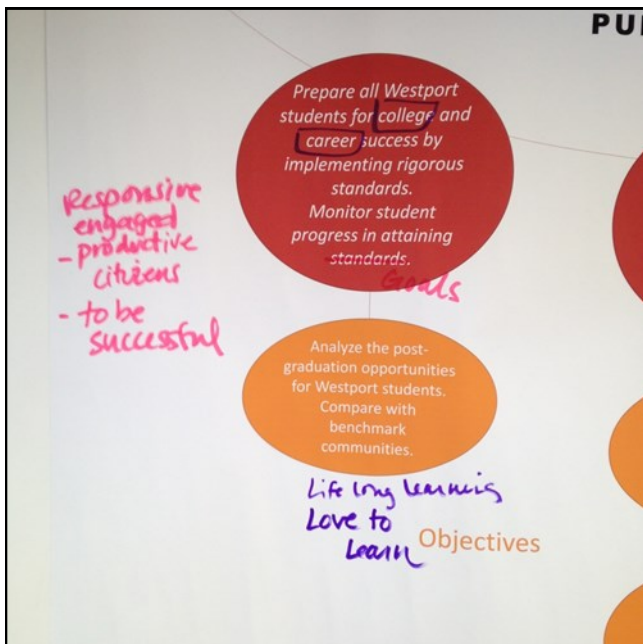 PU
Prepare all Westport
students for college and
career success by
implementing rigorous
standards.
Monitor student
progress in attaining
standards.
Goals
Responsive
engaged
- productive
citizens
- to be
successful
Analyze the post-
graduation opportunities
for Westport students.
Compare with
benchmark
communities.
Life long learning
Love to
Learn
Objectives